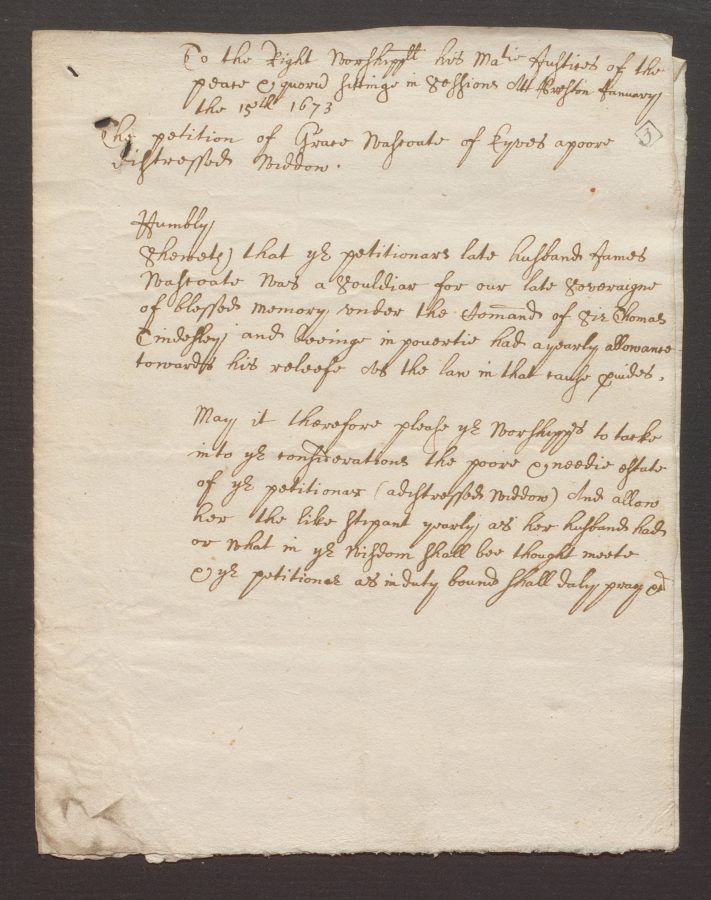 To the Right Worshippll his Matie Justices of the
peace & quorū sittinge in Sessions Att Preston January
the 15th 1673
The petition of Grace Wastcoate of Eyves a poore
distressed Widdow.
3
Humbly
Sheweth that yr petitionars late husband James
Wastcoate Was a Souldiar for our late Soveraigne
of blessed memory vnder the Comand of Sir Thomas
Tindesley and beeinge in povertie had a yearly allowance
towards his releefe As the law in that cause pvides.
May it therefore please yr Worshipps to tacke
into yr considerations the poore & needie estate
of yr petitionar (a distressed Widdow) And allow
her the like stipant yearly as her husband had
or What in yr Wisdom shall bee thought meete
& yr petitioner as in duty bound shall daly pray &c